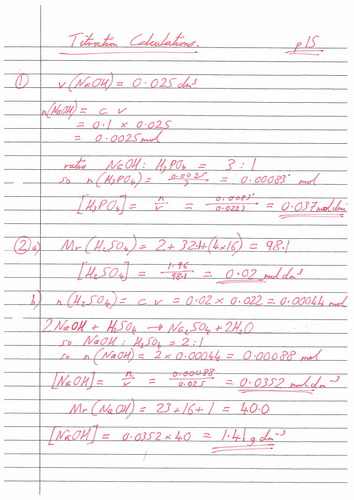 Titration Calculations. p15
① v(NaOH) = 0.025 dm³
n(NaOH) = c v
= 0.1 x 0.025
= 0.0025 mol
ratio NaOH : H₃PO₄ = 3 : 1
so n(H₃PO₄) = 0.0025/3 = 0.00083̇ mol
[H₃PO₄] = n/v = 0.00083̇/0.0223 = 0.037 mol dm
② a) Mr (H₂SO₄) = 2 + 32.1 + (4x16) = 98.1
[H₂SO₄] = 1.96/98.1 = 0.02 mol dm⁻³
b) n(H₂SO₄) = c v = 0.02 x 0.022 = 0.00044 mol
2NaOH + H₂SO₄ → Na₂SO₄ + 2H₂O
so NaOH : H₂SO₄ = 2:1
so n(NaOH) = 2 x 0.00044 = 0.00088 mol
[NaOH] = n/v = 0.00088/0.025 = 0.0352 mol dm⁻³
Mr (NaOH) = 23 + 16 + 1 = 40.0
[NaOH] = 0.0352 x 40 = 1.41 g dm⁻³